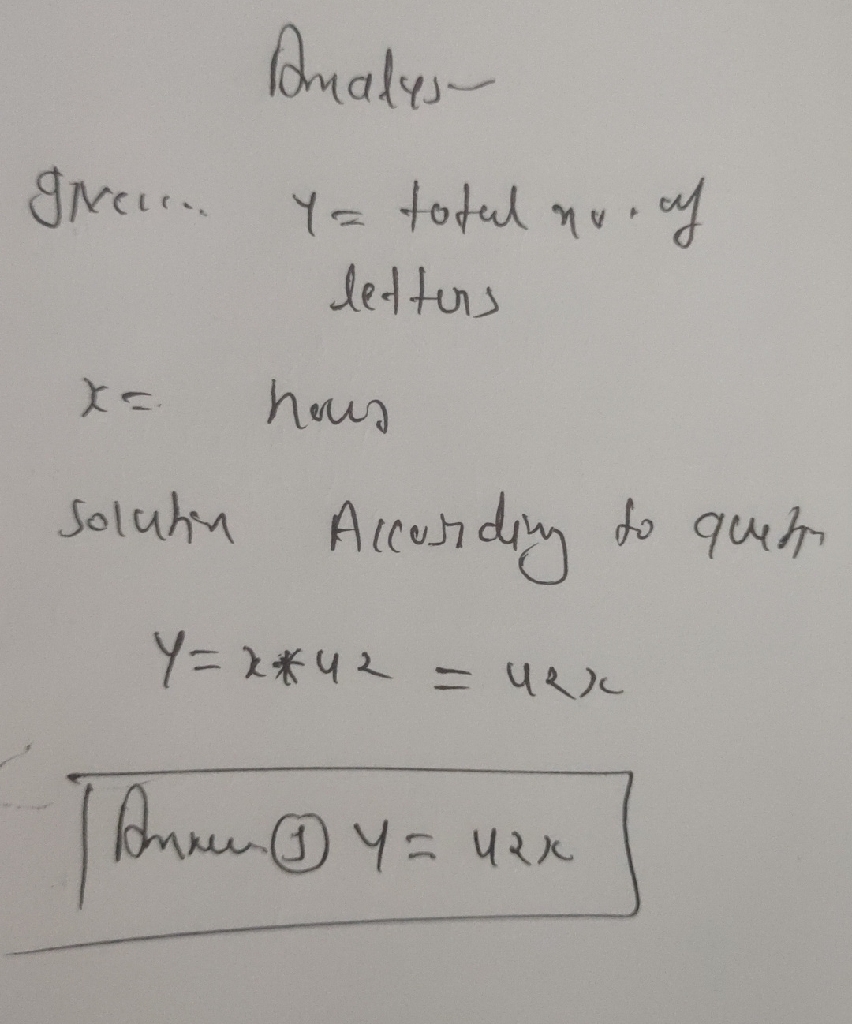 Analys
given.. Y = total no. of
letters
x = hours
Solution According to questn
Y = x * 42 = 42x
Answer ① Y = 42x